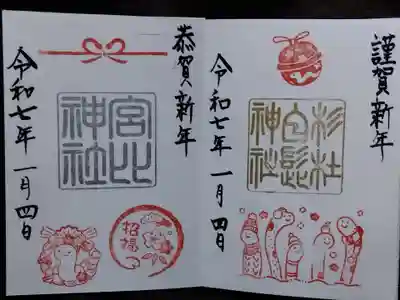 謹賀新年
杉杜
白髭
神社
令和七年 一月四日
恭賀新年
宮比
神社
令和七年 一月四日
招福